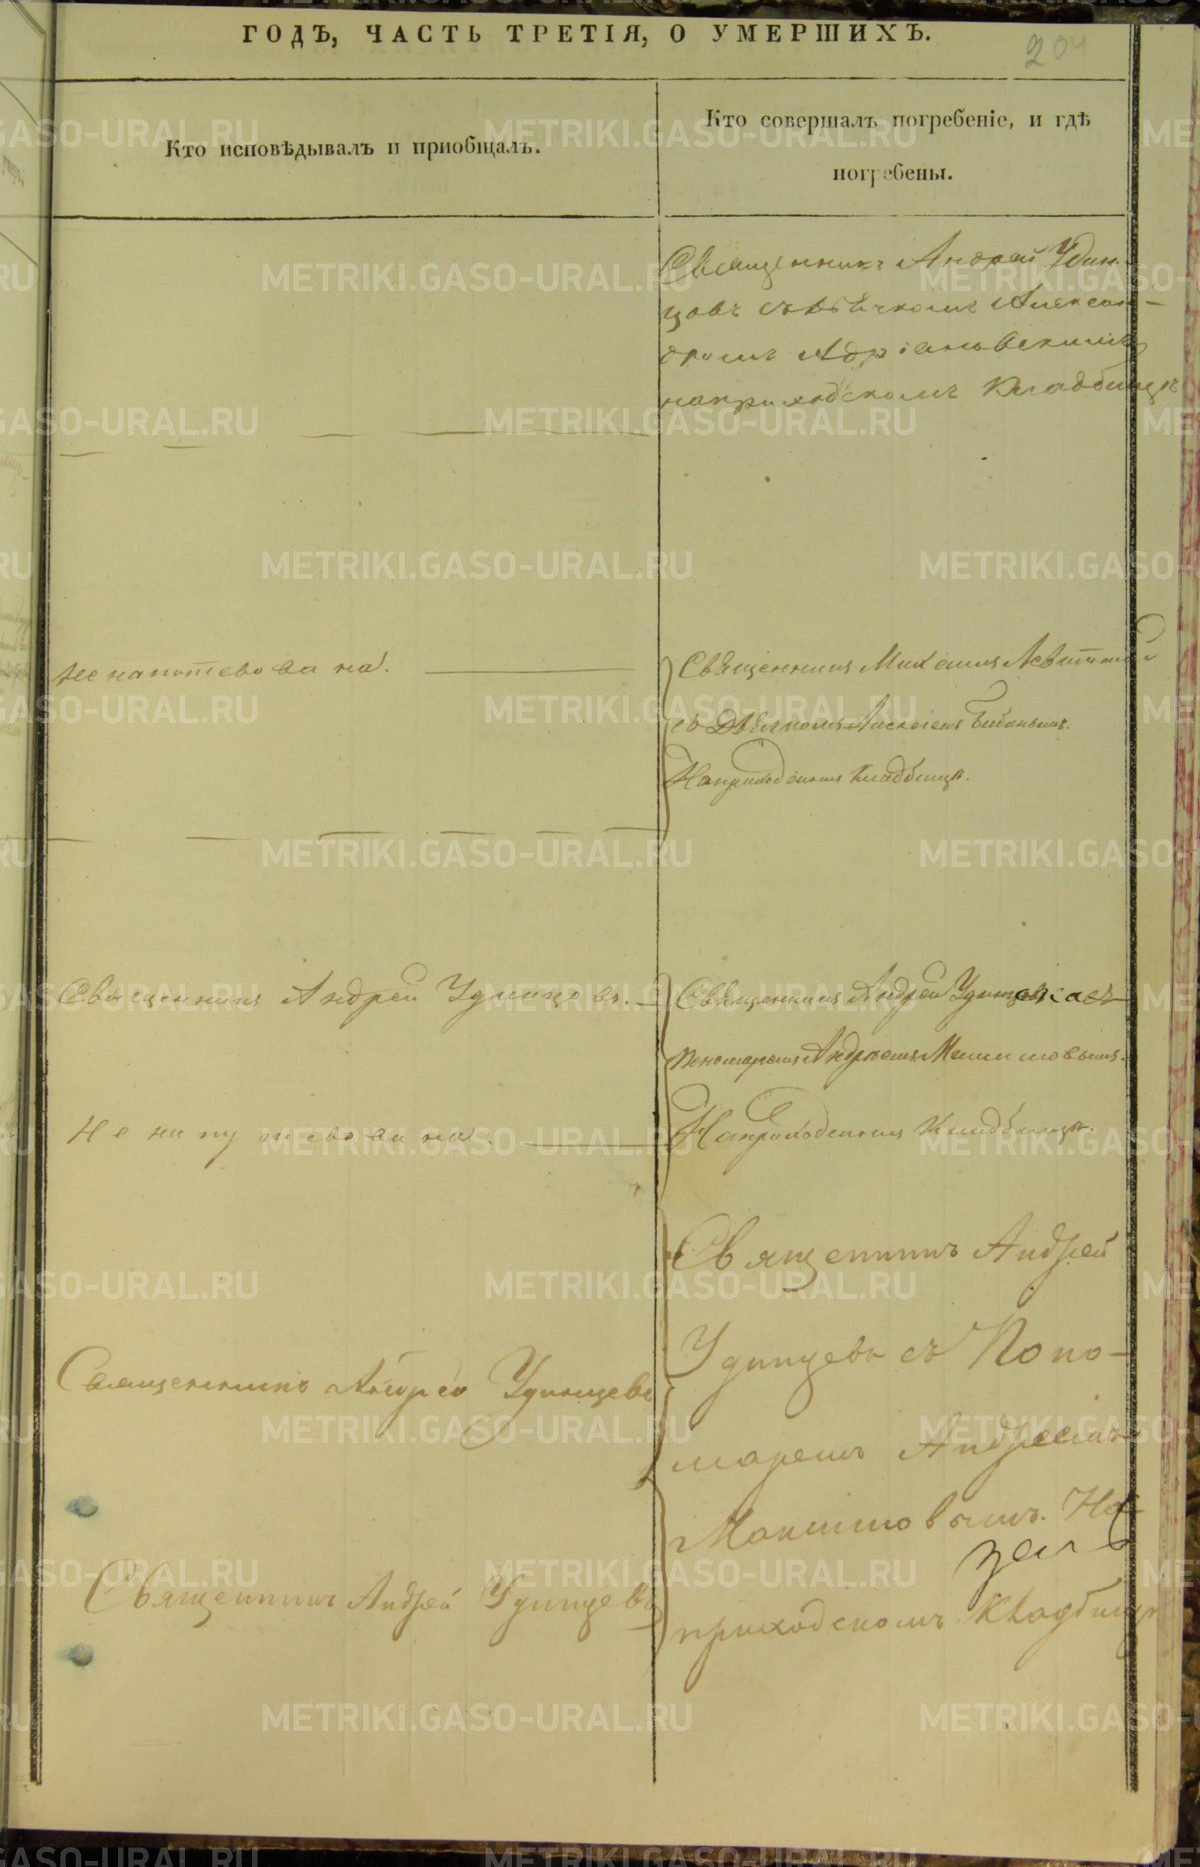 ГОДЪ, ЧАСТЬ ТРЕТІЯ, О УМЕРШИХЪ.
204
Кто исповѣдывалъ и пріобщалъ.
Кто совершалъ погребеніе, и гдѣ
погребены.
Священникъ Андрей Удин-
цовъ съ Дьячкомъ Алексан-
дромъ Адріановскимъ
на приходскомъ кладбищѣ
Не напутевована.
Священникъ Михаилъ Левитскій
съ Дьячкомъ Алексѣемъ
На приходскомъ Кладбищѣ.
Священникъ Андрей Удинцовъ.
Священникъ Андрей Удинцовъ съ
Пономаремъ Андреемъ Максимовымъ.
Не напутевована.
На приходскомъ Кладбищѣ.
Священникъ Андрей
Удинцевъ съ Поно-
Священникъ Андрей Удинцевъ
маремъ Андреемъ
Максимовымъ. На
Священникъ Андрей Удинцевъ
приходскомъ Кладбищѣ
METRIKI.GASO-URAL.RU